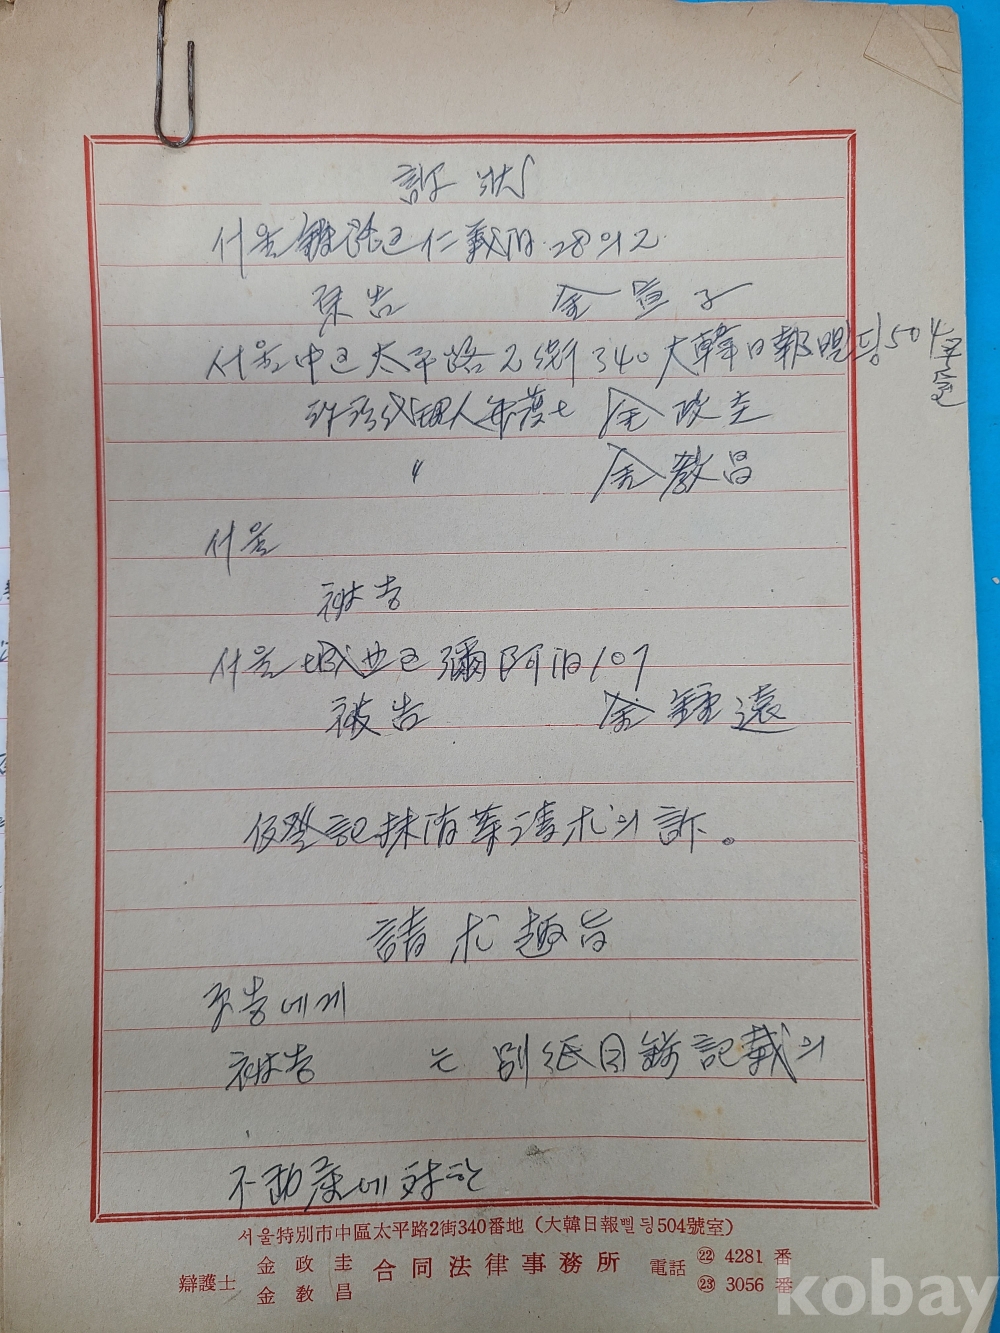 訴狀
서울 鍾路区 仁義洞 28의2
原告 金宣子
서울 中区 太平路 2街 340 大韓日報삘딍 504号室
訴訟代理人 弁護士 金政圭
〃 金敎昌
서울
被告
서울 城北区 彌阿洞 107
被告 金鍾遠
仮登記抹消等 請求의 訴。
請求趣旨
原告에게
被告 는 別紙目錄記載의
不動産에 対한
서울特別市中區太平路2街340番地 (大韓日報삘딍504號室)
辯護士 金政圭 金敎昌 合同法律事務所 電話 ㉒ 4281 番 ㉓ 3056 番
kobay